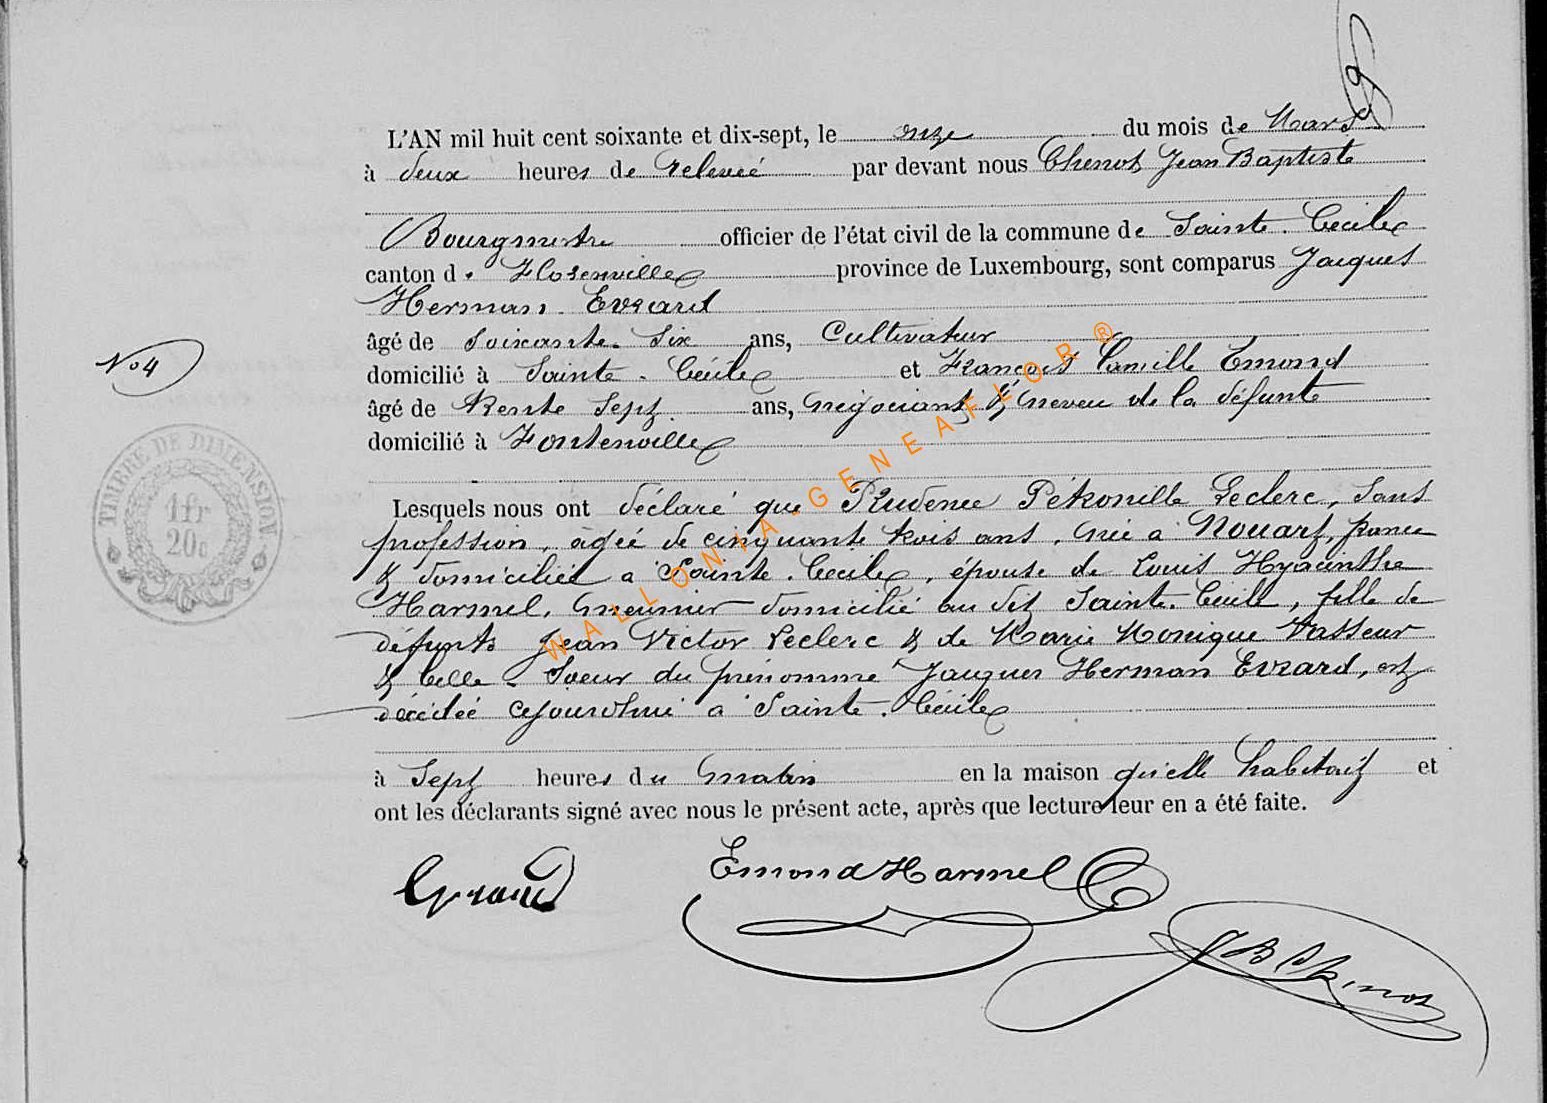 L'AN mil huit cent soixante et dix-sept, le onze du mois de Mars
à deux heures de relevée par devant nous Chenot Jean Baptiste
Bourgmestre officier de l'état civil de la commune de Sainte-Cécile
canton de Florenville province de Luxembourg, sont comparus Jacques
Herman Evrard
âgé de Soixante-Six ans, Cultivateur
N° 4
domicilié à Sainte-Cécile et François Camille Emond
âgé de trente Sept ans, négociant & neveu de la défunte
domicilié à Fontenoille
TIMBRE DE DIMENSION
1 fr
20c
Lesquels nous ont déclaré que Prudence Pétronille Leclerc, Sans
profession, agée de cinquante trois ans, née à Nouart, france
& domiciliée à Sainte-Cécile, épouse de Louis Hyacinthe
Harmel, meunier domicilié au dit Sainte-Cécile, fille de
défunts Jean Victor Leclerc & de Marie Monique Vasseur
& belle-Soeur du prénommé Jacques Herman Evrard, est
décédée cejourd'hui à Sainte-Cécile
à Sept heures du matin en la maison qu'elle habitait et
ont les déclarants signé avec nous le présent acte, après que lecture leur en a été faite.
Evrard Emond Harmel
JB Chenot
WALLONIA-GENEAFLOR®